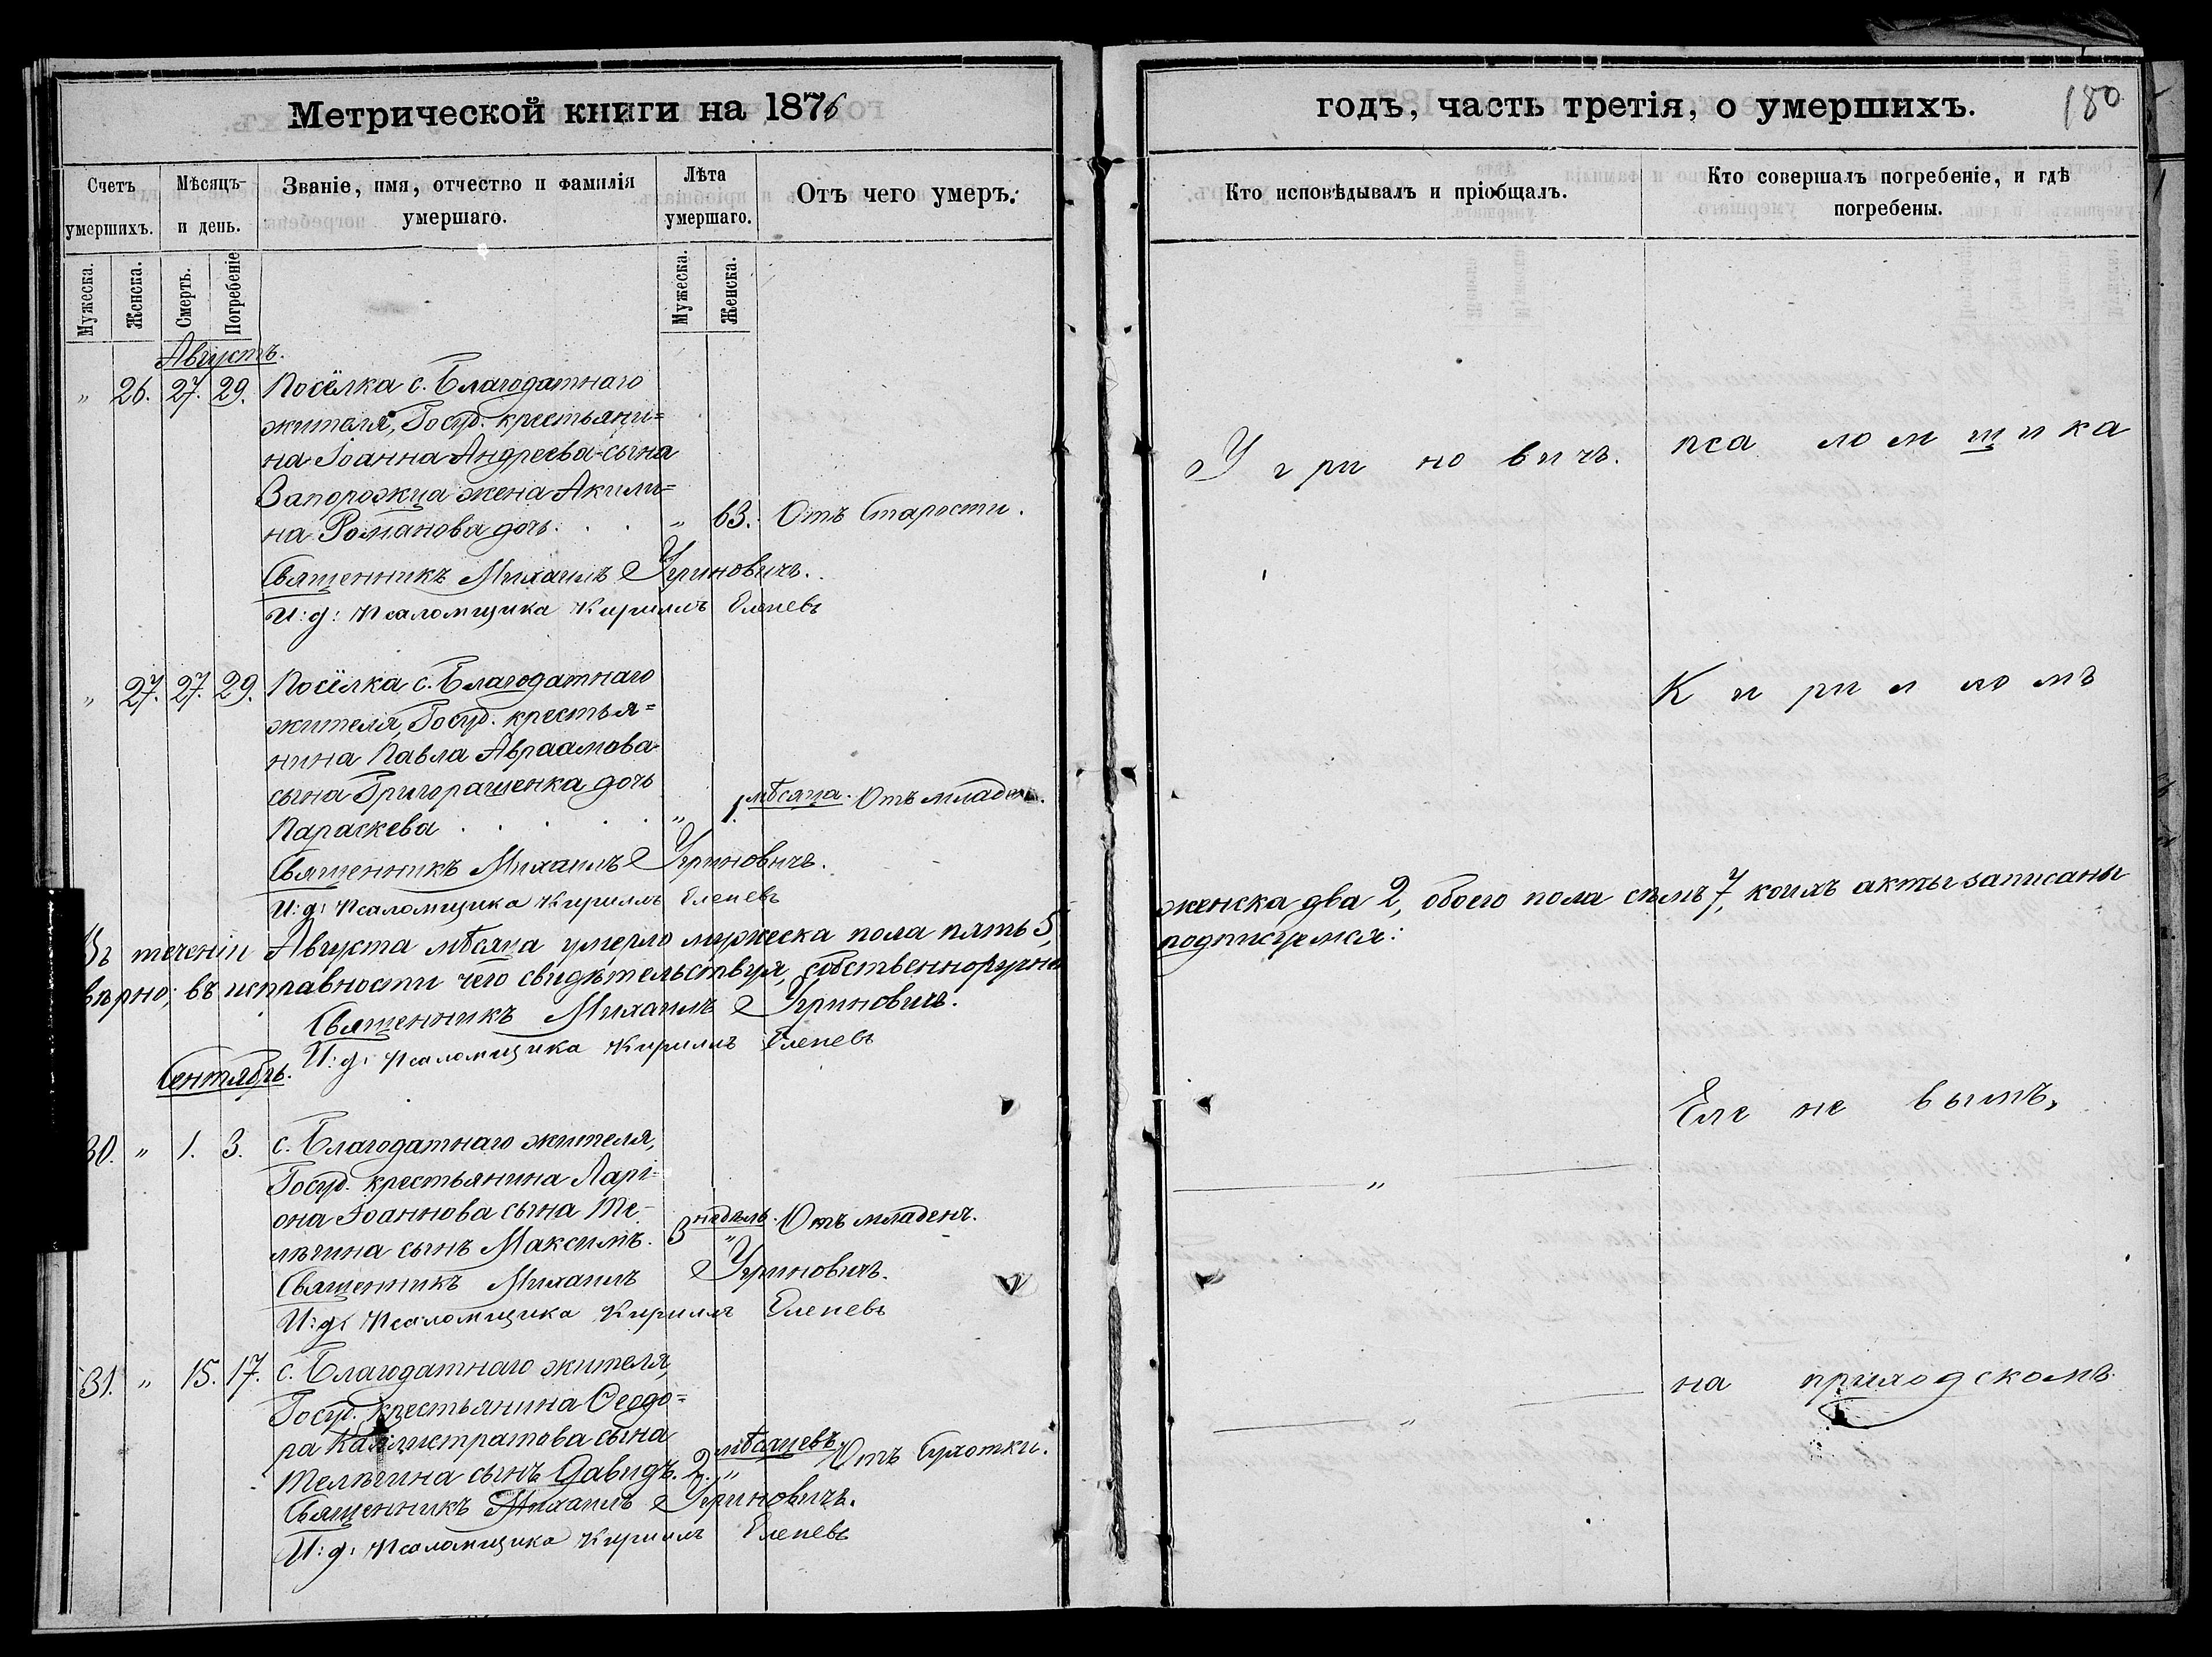 Метрической книги на 1876
Счетъ умершихъ.
Мѣсяцъ и день.
Званіе, имя, отчество и фамилія умершаго.
Лѣта умершаго.
Отъ чего умеръ.
Мужеска.
Женска.
Смерть.
Погребеніе
Мужеска.
Женска.
Августъ.
„ 26. 27. 29. Посёлка с. Благодатнаго
жителя, Госуд. крестьяни=
на Іоанна Андреева сына
Запорожца жена Акили=
на Романова дочь. . . „ 63. Отъ старости.
Священникъ Михаилъ Угриновичъ.
И: д: Псаломщика Кириллъ Еленевъ
„ 27. 27. 29. Посёлка с. Благодатнаго
жителя, Госуд. крестья=
нина Павла Авраамова
сына Григорашенка дочь
Параскева . . . . „ 1. мѣсяца. Отъ младен.
Священникъ Михаилъ Угриновичъ.
И: д: Псаломщика Кириллъ Еленевъ
Въ теченіи Августа мѣсяца умерло мужеска пола пять 5,
вѣрно; въ исправности чего свидѣтельствуя, собственноручно
Священникъ Михаилъ Угриновичъ.
И: д: Псаломщика Кириллъ Еленевъ
Сентябрь.
30. „ 1. 3. с. Благодатнаго жителя,
Госуд. крестьянина Ларі-
она Іоаннова сына Те-
лѣгина сынъ Максимъ. 3 недѣль. „ Отъ младенч.
Священникъ Михаилъ Угриновичъ.
И: д: Псаломщика Кириллъ Еленевъ
31. „ 15. 17. с. Благодатнаго жителя,
Госуд. крестьянина Ѳеодо=
ра Каллистратова сына
Телѣгина сынъ Давидъ. 2. мѣсяцевъ. „ Отъ сухотки.
Священникъ Михаилъ Угриновичъ.
И: д: Псаломщика Кириллъ Еленевъ
годъ, часть третія, о умершихъ.
180
Кто исповѣдывалъ и пріобщалъ.
Кто совершалъ погребеніе, и гдѣ погребены.
Угриновичъ. псаломщика
Кирилломъ
женска два 2, обоего пола семь 7, коихъ акты записаны
подписуемся:
Еленевымъ,
„
на приходскомъ
„